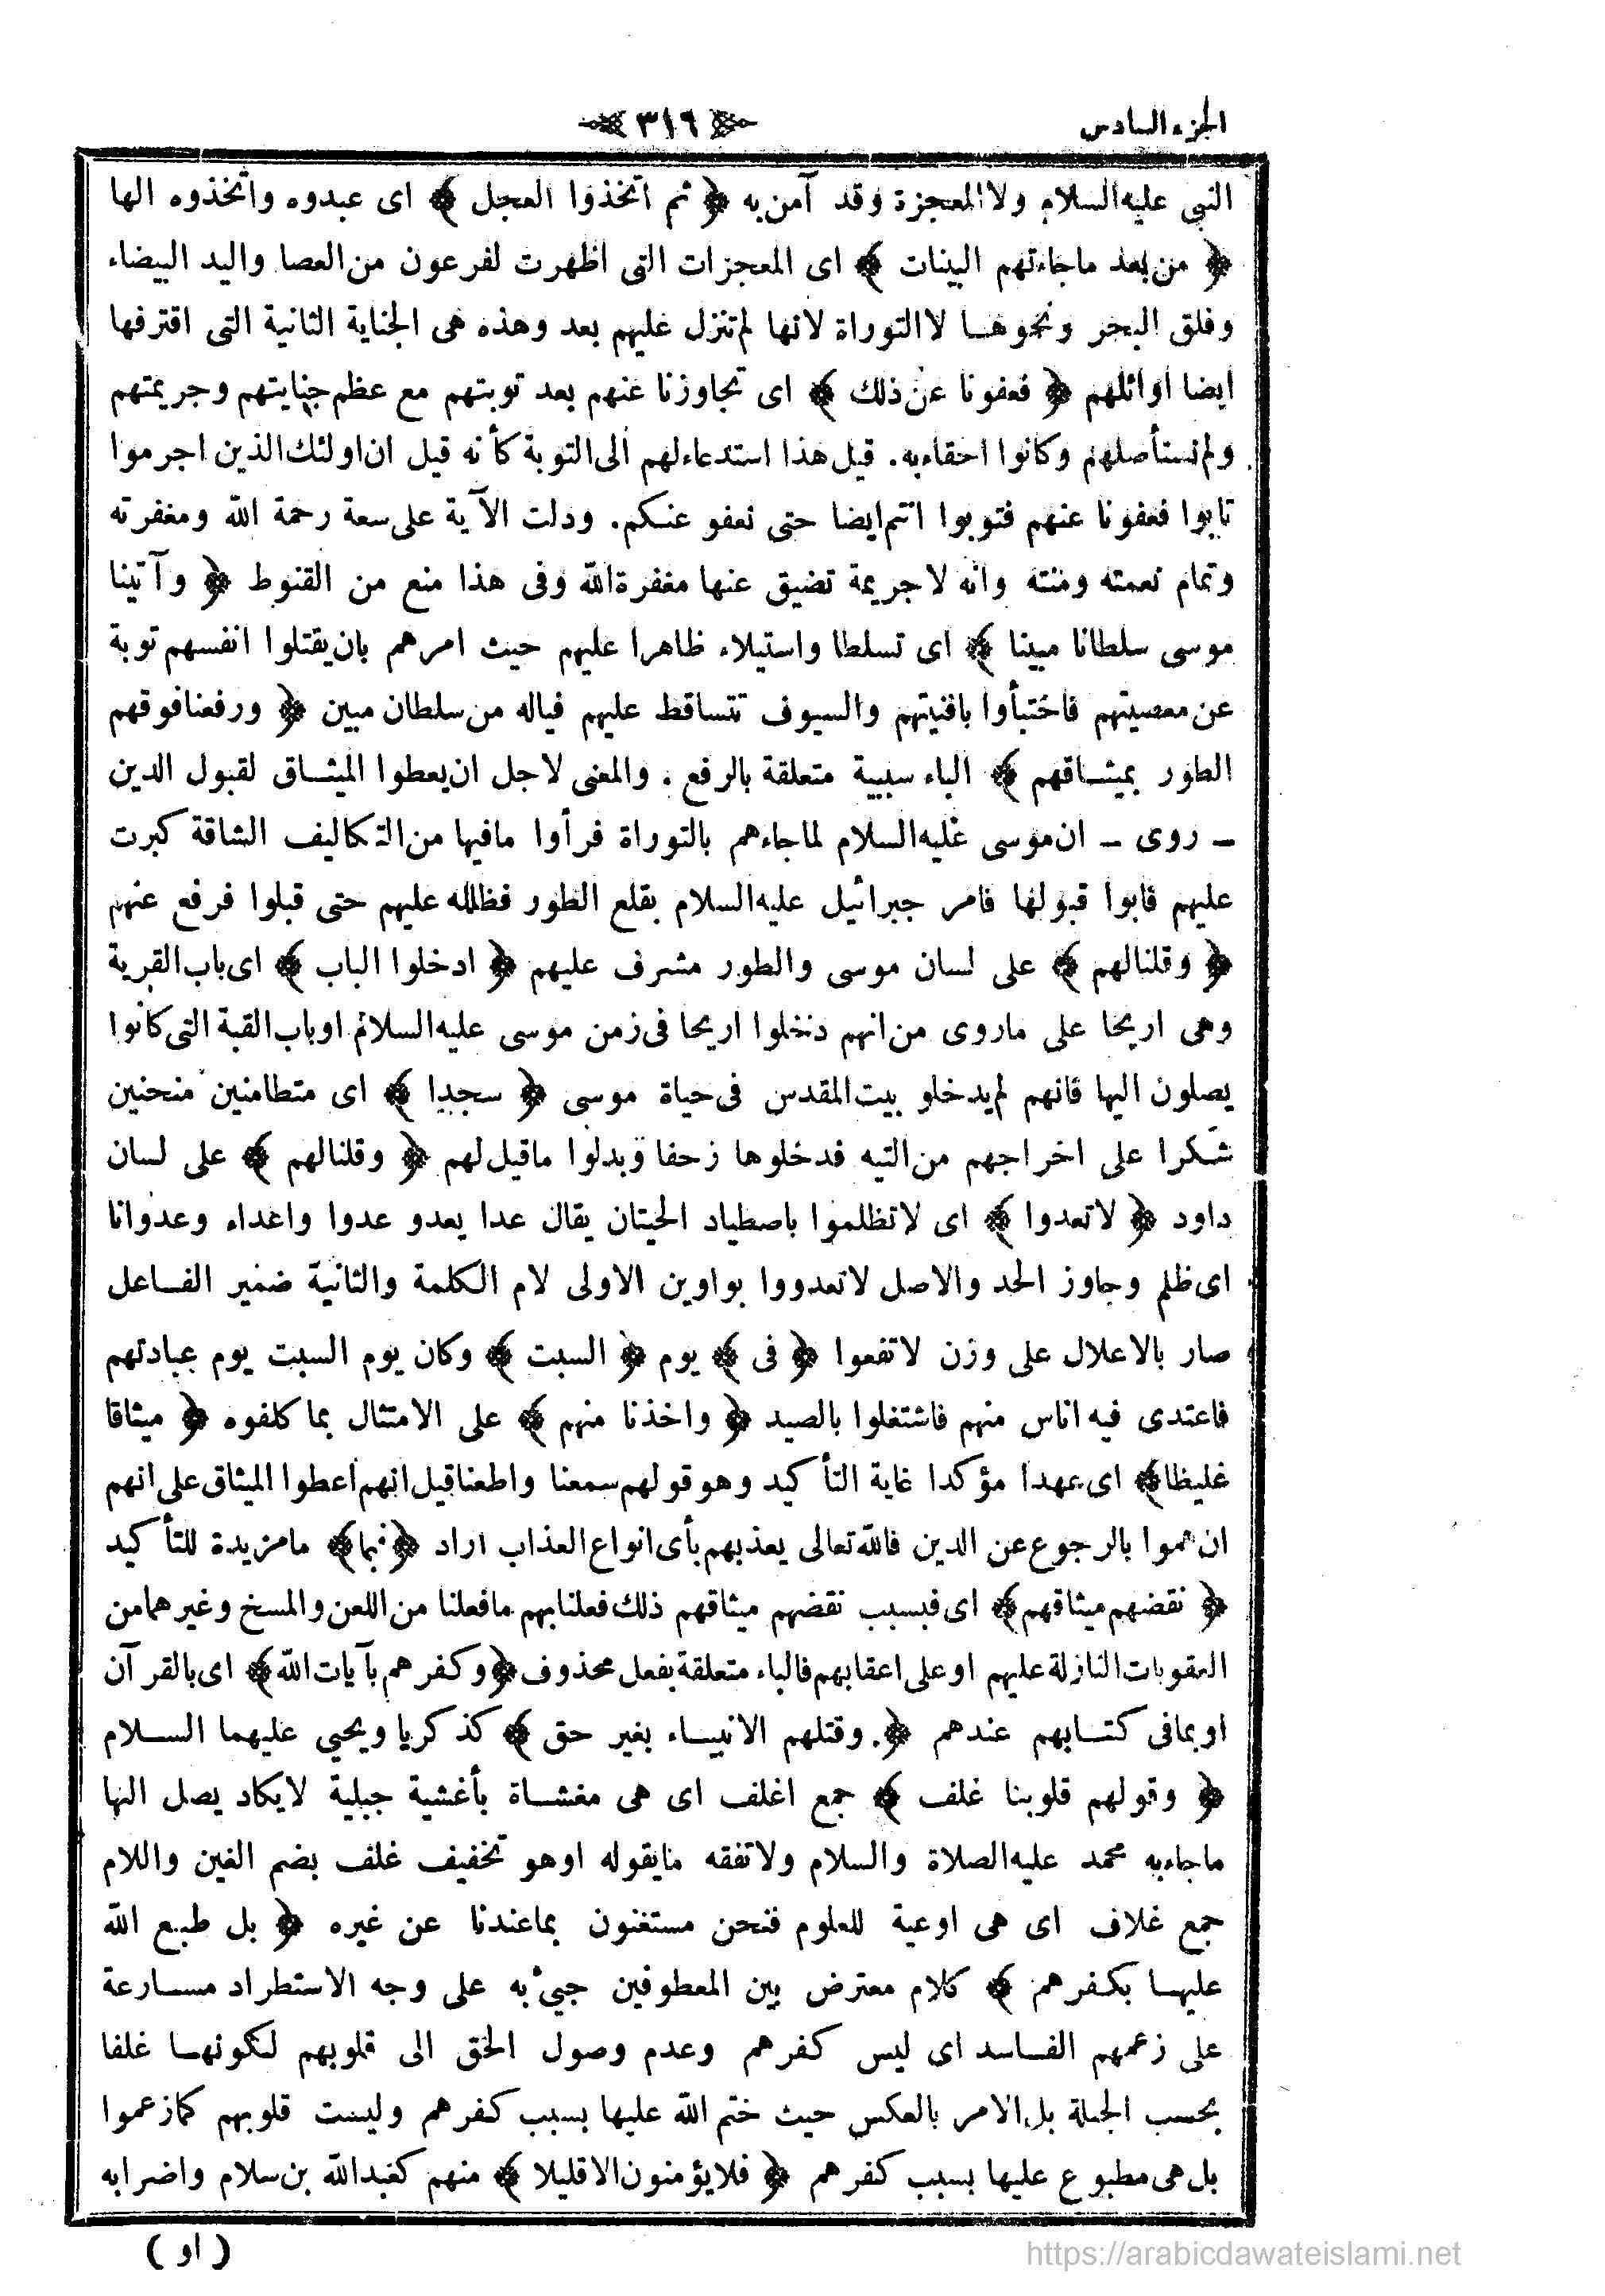 الجزء السادس
٣١٦
النبى عليه السلام ولا المعجزة وقد آمن به ﴿ ثم اتخذوا العجل ﴾ اى عبدوه واتخذوه الها
﴿ من بعد ما جاءتهم البينات ﴾ اى المعجزات التى اظهرت لفرعون من العصا واليد البيضاء
وفلق البحر ونحوها لا التوراة لانها لم تنزل عليهم بعد وهذه هى الجناية الثانية التى اقترفها
ايضا اوائلهم ﴿ فعفونا عن ذلك ﴾ اى تجاوزنا عنهم بعد توبتهم مع عظم جنايتهم وجريمتهم
ولم نستأصلهم وكانوا احقاء به. قيل هذا استدعاء لهم الى التوبة كأنه قيل ان اولئك الذين اجرموا
تابوا فعفونا عنهم فتوبوا اتم ايضا حتى نعفو عنكم. ودلت الآية على سعة رحمة الله ومغفرته
وتمام نعمته ومنته وانه لا جريمة تضيق عنها مغفرة الله وفى هذا منع من القنوط ﴿ وآتينا
موسى سلطانا مبينا ﴾ اى تسلطا واستيلاء ظاهرا عليهم حيث امرهم بان يقتلوا انفسهم توبة
عن معصيتهم فاختبأوا بافنيتهم والسيوف تتساقط عليهم فياله من سلطان مبين ﴿ ورفعنا فوقهم
الطور بميثاقهم ﴾ الباء سببية متعلقة بالرفع. والمعنى لاجل ان يعطوا الميثاق لقبول الدين
ـ روى ـ ان موسى عليه السلام لما جاءهم بالتوراة فرأوا ما فيها من التكاليف الشاقة كبرت
عليهم فابوا قبولها فامر جبرائيل عليه السلام بقلع الطور فظلله عليهم حتى قبلوا فرفع عنهم
﴿ وقلنا لهم ﴾ على لسان موسى والطور مشرف عليهم ﴿ ادخلوا الباب ﴾ اى باب القرية
وهى اريحا على ما روى من انهم دخلوا اريحا فى زمن موسى عليه السلام او باب القبة التى كانوا
يصلون اليها فانهم لم يدخلو بيت المقدس فى حياة موسى ﴿ سجدا ﴾ اى متطامنين منحنين
شكرا على اخراجهم من التيه فدخلوها زحفا وبدلوا ما قيل لهم ﴿ وقلنا لهم ﴾ على لسان
داود ﴿ لا تعدوا ﴾ اى لا تظلموا باصطياد الحيتان يقال عدا يعدو عدوا واعداء وعدوانا
اى ظلم وجاوز الحد والاصل لا تعدووا بواوين الاولى لام الكلمة والثانية ضمير الفاعل
صار بالاعلال على وزن لا تفعوا ﴿ فى ﴾ يوم ﴿ السبت ﴾ وكان يوم السبت يوم عبادتهم
فاعتدى فيه اناس منهم فاشتغلوا بالصيد ﴿ واخذنا منهم ﴾ على الامتثال بما كلفوه ﴿ ميثاقا
غليظا ﴾ اى عهدا مؤكدا غاية التأكيد وهو قولهم سمعنا واطعنا قيل انهم اعطوا الميثاق على انهم
ان هموا بالرجوع عن الدين فالله تعالى يعذبهم بأى انواع العذاب اراد ﴿ فبما ﴾ ما مزيدة للتأكيد
﴿ نقضهم ميثاقهم ﴾ اى فبسبب نقضهم ميثاقهم ذلك فعلنا بهم ما فعلنا من اللعن والمسخ وغيرهما من
العقوبات النازلة عليهم او على اعقابهم فالباء متعلقة بفعل محذوف ﴿ وكفرهم بآيات الله ﴾ اى بالقرآن
او بما فى كتابهم عندهم ﴿ وقتلهم الانبياء بغير حق ﴾ كذكريا ويحيى عليهما السلام
﴿ وقولهم قلوبنا غلف ﴾ جمع اغلف اى هى مغشاة بأغشية جبلية لا يكاد يصل اليها
ما جاء به محمد عليه الصلاة والسلام ولا تفقه ما يقوله او هو تخفيف غلف بضم الغين واللام
جمع غلاف اى هى اوعية للعلوم فنحن مستغنون بما عندنا عن غيره ﴿ بل طبع الله
عليها بكفرهم ﴾ كلام معترض بين المعطوفين جيئ به على وجه الاستطراد مسارعة
على زعمهم الفاسد اى ليس كفرهم وعدم وصول الحق الى قلوبهم لكونها غلفا
بحسب الجبلة بل الامر بالعكس حيث ختم الله عليها بسبب كفرهم وليست قلوبهم كما زعموا
بل هى مطبوع عليها بسبب كفرهم ﴿ فلا يؤمنون الا قليلا ﴾ منهم كعبد الله بن سلام واضرابه
( او )
https://arabicdawateislami.net